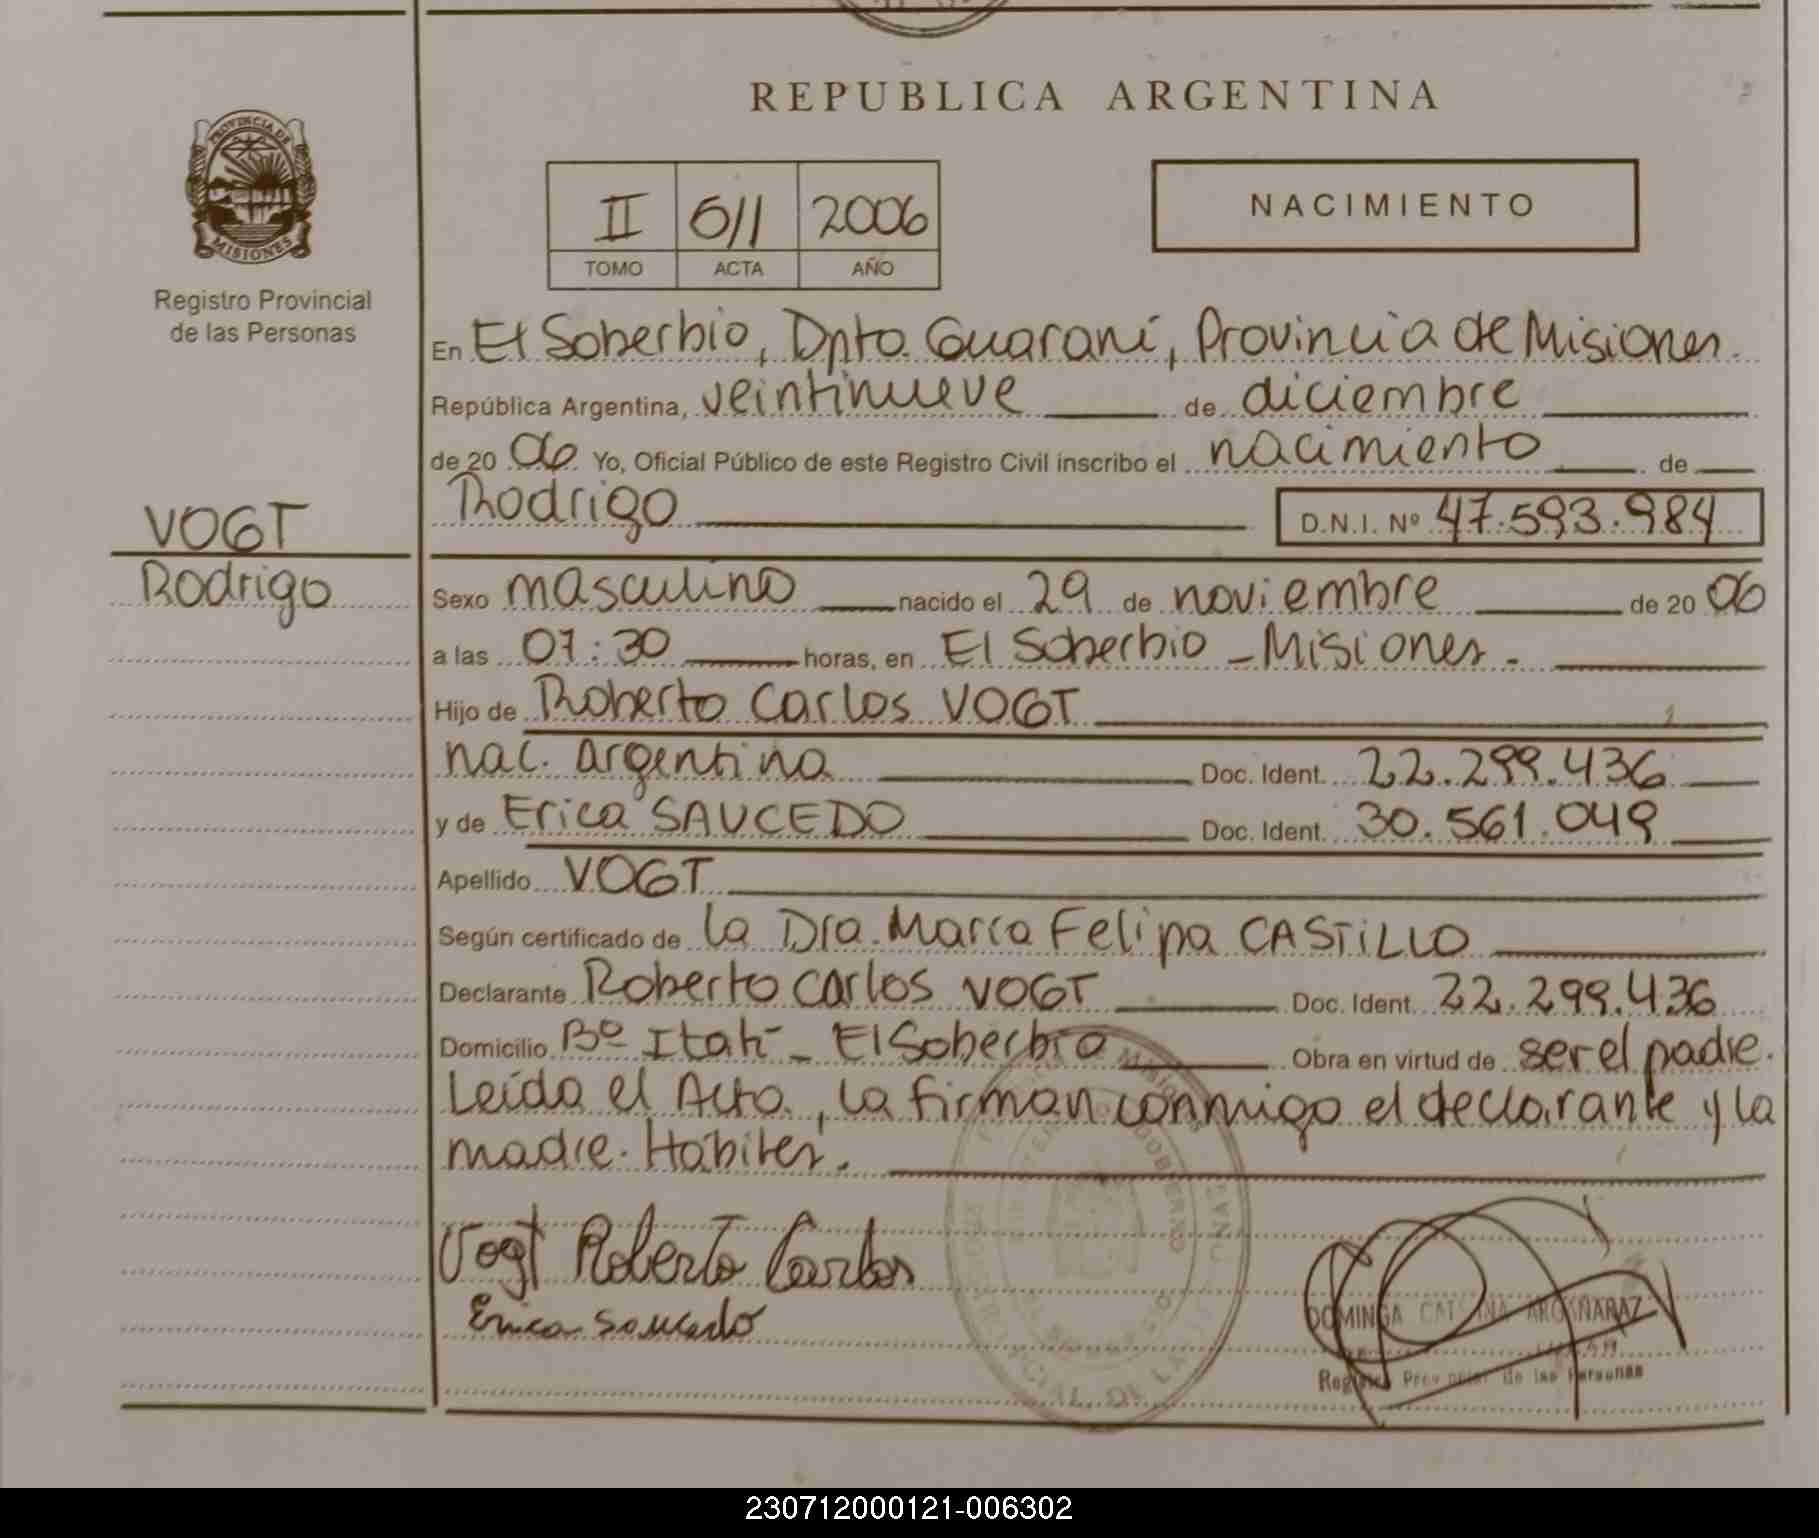 REPUBLICA ARGENTINA
PROVINCIA DE
MISIONES
Registro Provincial
de las Personas
II 611 2006
TOMO ACTA AÑO
NACIMIENTO
En El Soberbio, Dpto. Guaraní, Provincia de Misiones.
República Argentina, veintinueve de diciembre
de 20 06 Yo, Oficial Público de este Registro Civil inscribo el nacimiento de
Rodrigo D.N.I. Nº 47.593.984
VOGT
Rodrigo
Sexo masculino nacido el 29 de noviembre de 20 06
a las 07:30 horas, en El Soberbio - Misiones.
Hijo de Roberto Carlos VOGT
nac. argentina Doc. Ident. 22.299.436
y de Erica SAUCEDO Doc. Ident. 30.561.049
Apellido VOGT
Según certificado de la Dra. María Felipa CASTILLO
Declarante Roberto Carlos VOGT Doc. Ident. 22.299.436
Domicilio Bº Itatí - El Soberbio Obra en virtud de ser el padre.
Leída el Acta, la firman conmigo el declarante y la
madre. Hábiles.
Vogt Roberto Carlos
Erica Saucedo
DOMINGA ARGAÑARAZ
de las Personas
230712000121-006302